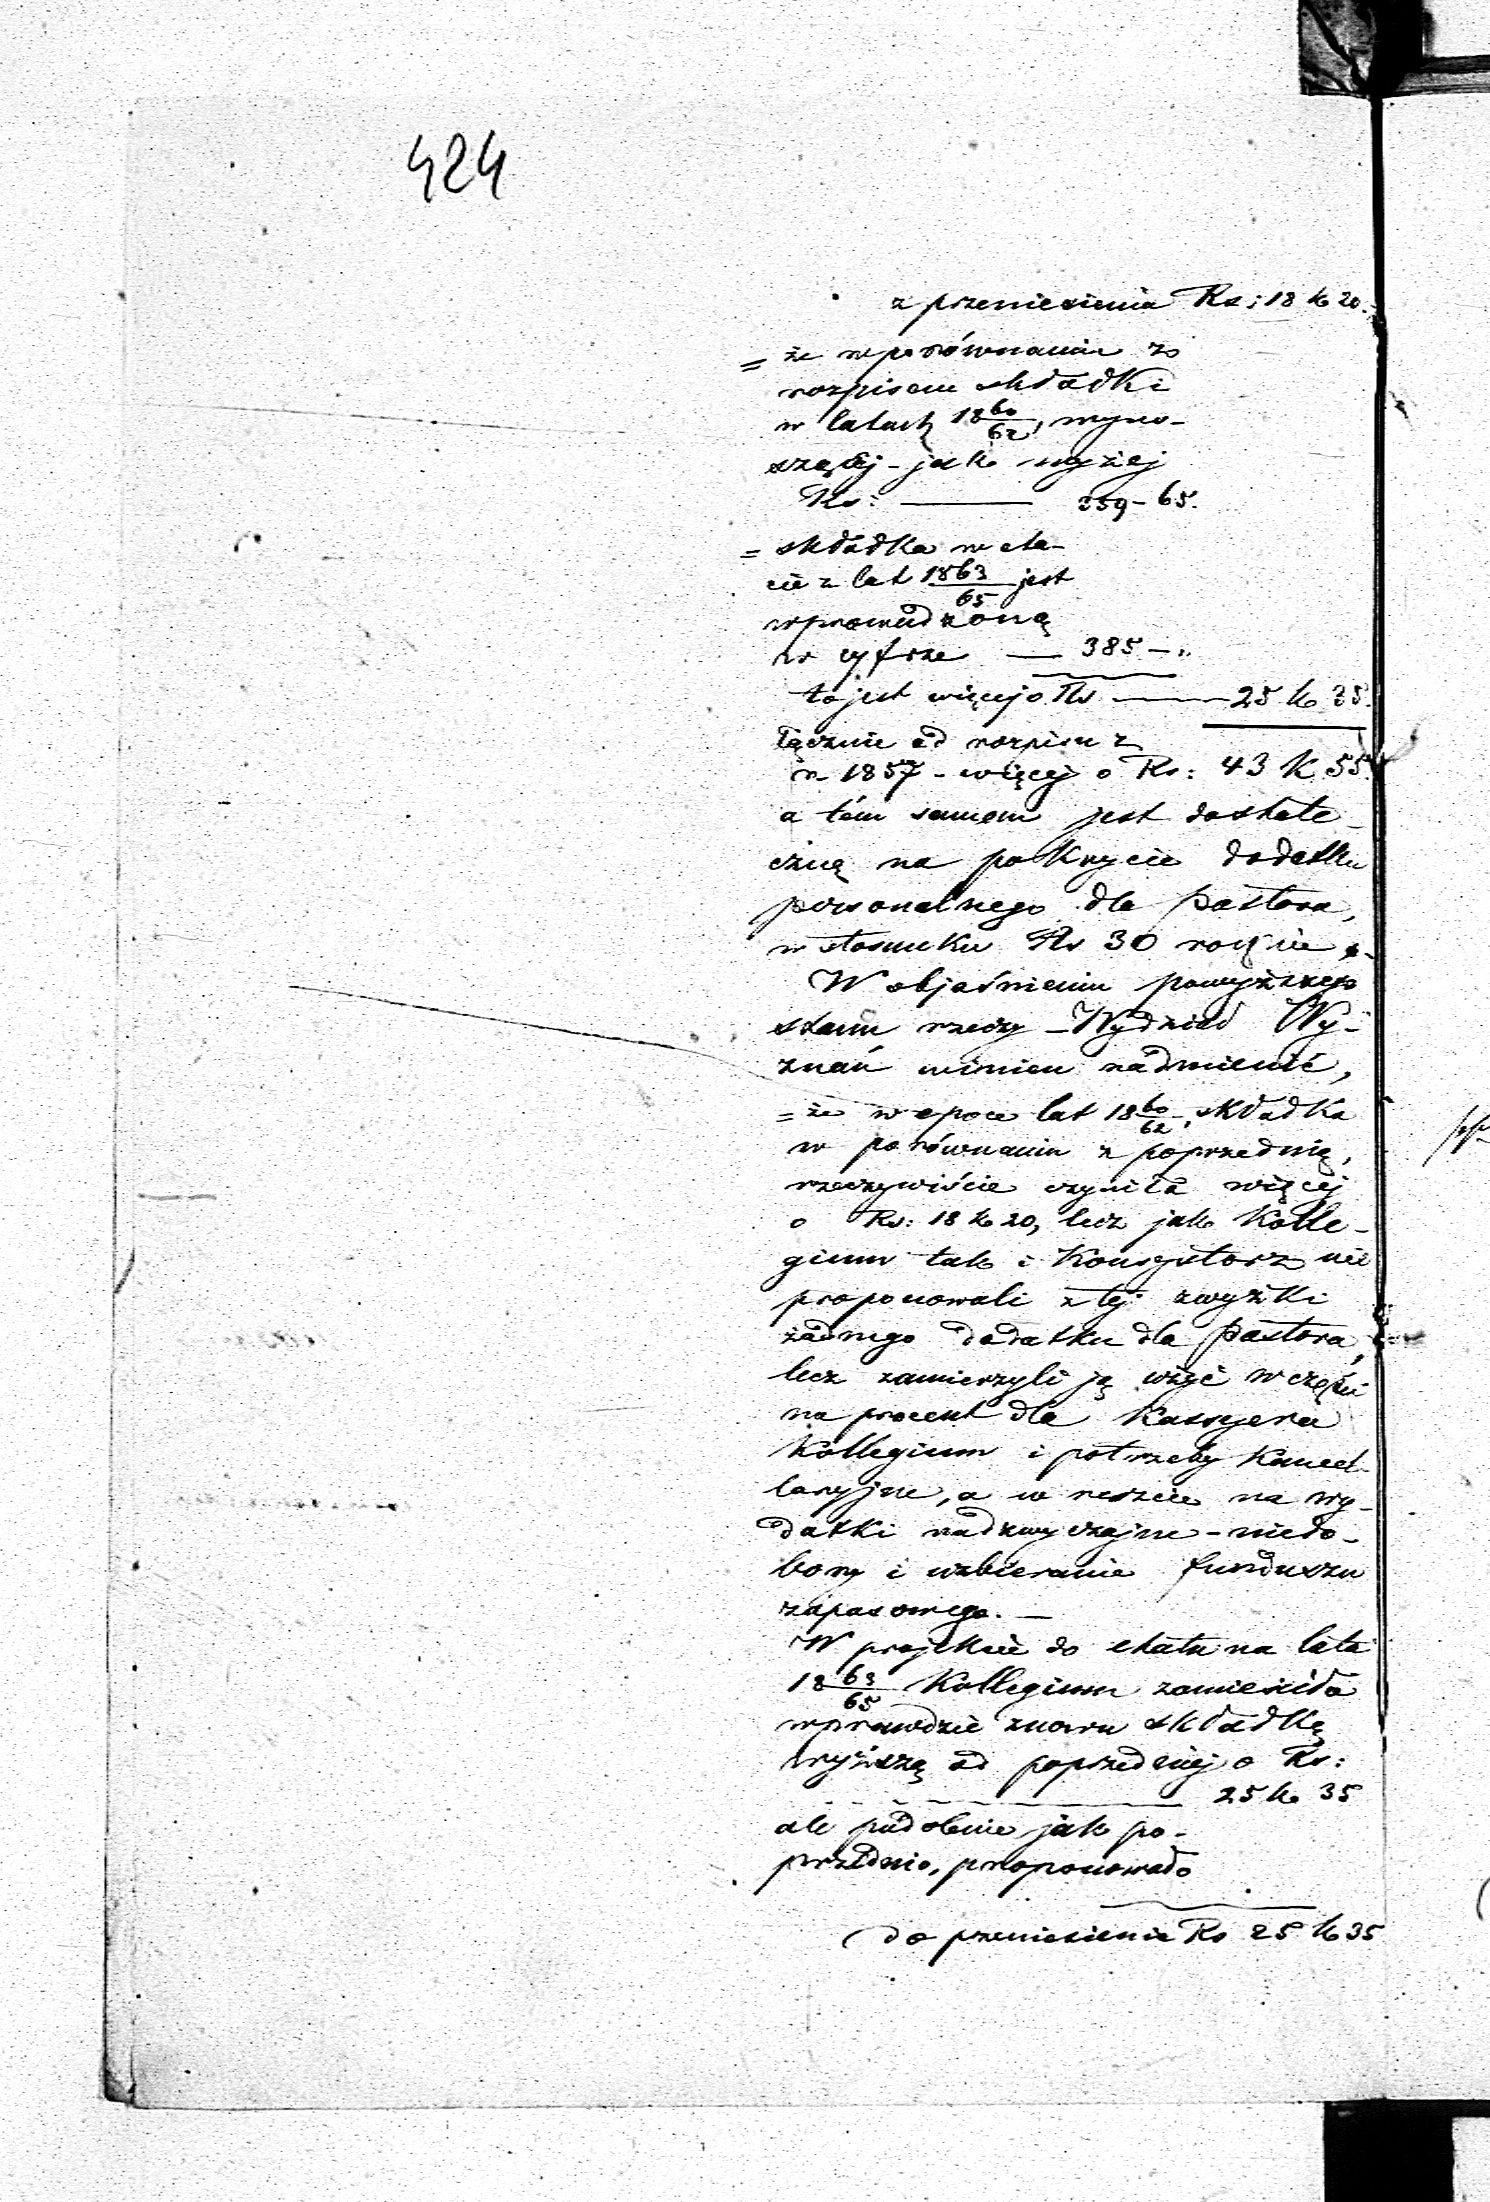 424
z przeniesienia Rs: 18 k 20.
= że w porównaniu z
rozpisem składki
w latach 18 60/62, wyno-
szącej - jak wyżej
Rs: — 359 - 65.
= składka w eta-
cie z lat 1863/65 jest
wprowadzoną
w cyfrze — 385 - „
to jest więcej o Rs — 25 k 35.
łącznie od rozpisu z
r. 1857 - więcej o Rs: 43 k 55.
a tém samem jest dostate-
czną na pokrycie dodatku
personalnego dla Pastora,
w stosunku Rs 30 rocznie.
W objaśnieniu powyższego
stanu rzeczy - Wydział Wy-
znań winien nadmienić,
= że w epoce lat 18 60/62, składka
w porównaniu z poprzednią,
rzeczywiście czyniła więcej
o Rs: 18 k 20, lecz jak Kolle-
gium tak i Konsystorz nie
proponowali z tej zwyżki
żadnego dodatku dla Pastora,
lecz zamierzyli ją użyć w części
na procent dla Kassyera
Kollegium i potrzeby kancel-
laryjne, a w reszcie na wy-
datki nadzwyczajne - niedo-
bory i uzbieranie funduszu
zapasowego. —
W projekcie do etatu na lata
18 63/65 Kollegium zamieściło
wprawdzie znowu składkę
wyższą od poprzedniej o Rs:
— 25 k 35
ale podobnie jak po-
przednio, proponowało
do przeniesienia Rs 25 k 35